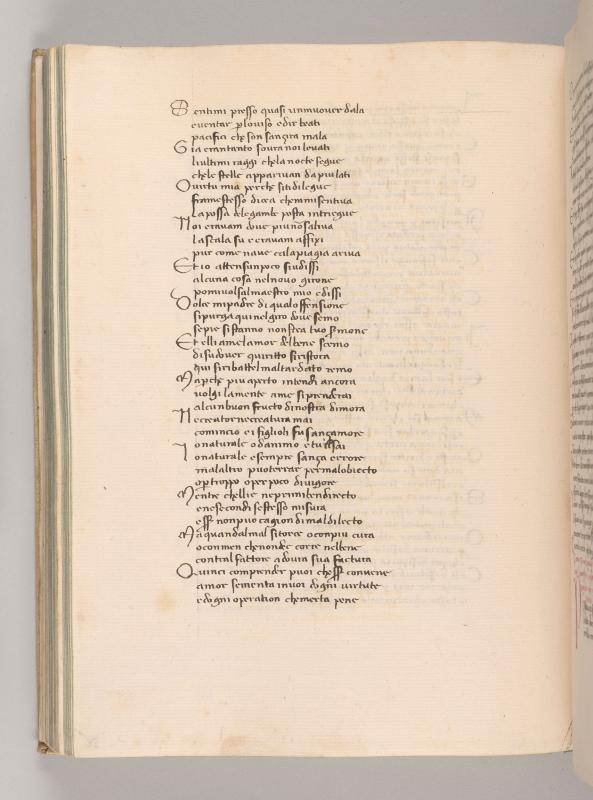 Sentimi presso quasi unmuover dala
euentar plouiso edir beati
pacifici che son sanzira mala
Gia erantanto soura noi leuati
liultimi raggi chela nocte segue
chele stelle appariuan dapiu lati
O uirtu mia perche sitidilegue
framestesso dicea chemmisentiua
la possa delegambe posta intriegue
Noi erauam doue piu nõ saliua
la scala su e erauam affixi
pur come naue cala piagia ariua
Et io attensunpoco siudissi
alcuna cosa nelnouo girone
pomiuolsi almaestro mio edissi
Dolce mi padre di qual offensione
sipurga qui nelgiro doue semo
sepie sistanno nonstea tuo smone
Et elli ame lamor delbene scemo
disudouer quiritto siristora
qui siribattel maltardato remo
Ma pche piu aperto intendi ancora
uolgi lamente ame siprenderai
alcun buon fructo dinostra dimora
Ne creator necreatura mai
comincio ei figlioli fu sanzamore
o naturale odanimo etu ilsai
Lo naturale e sempre sanza errore
ma laltro puoterrar per malobiecto
o ptroppo oper poco diuigore
Mentre chellie neprimi ben directo
enesecondi sestesso misura
esser nonpuo cagion di mal dilecto
Ma quandal mal sitorce ocon piu cura
o conmen chenondee corre nelbene
contral fattore adoura sua factura
Quinci comprender puoi chesser conuene
amor sementa inuoi dogni uirtute
edogni operation chemerta pene